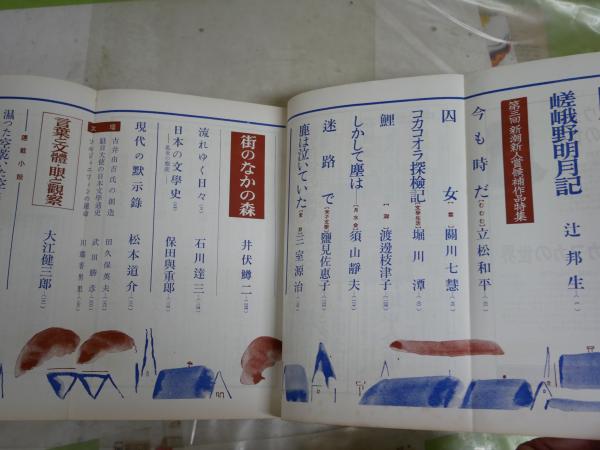 嵯峨野明月記 辻邦生
第三回新潮新人賞候補作品特集
今も時だ 立松和平
囚女 關川七慧
コカコオラ探檢記 堀川潭
鯉 渡邊枝津子
しかして塵は 須山靜夫
迷路で 鹽見佐惠子
鹿は泣いていた 三室源治
街のなかの森 井伏鱒二
流れゆく日々 石川達三
日本の文學史 保田與重郎
現代の默示錄 松本道介
文壇
古井由吉氏の創造 田久保英夫
武田勝彦
言葉と文體、眼と觀察 大江健三郎
連載小說